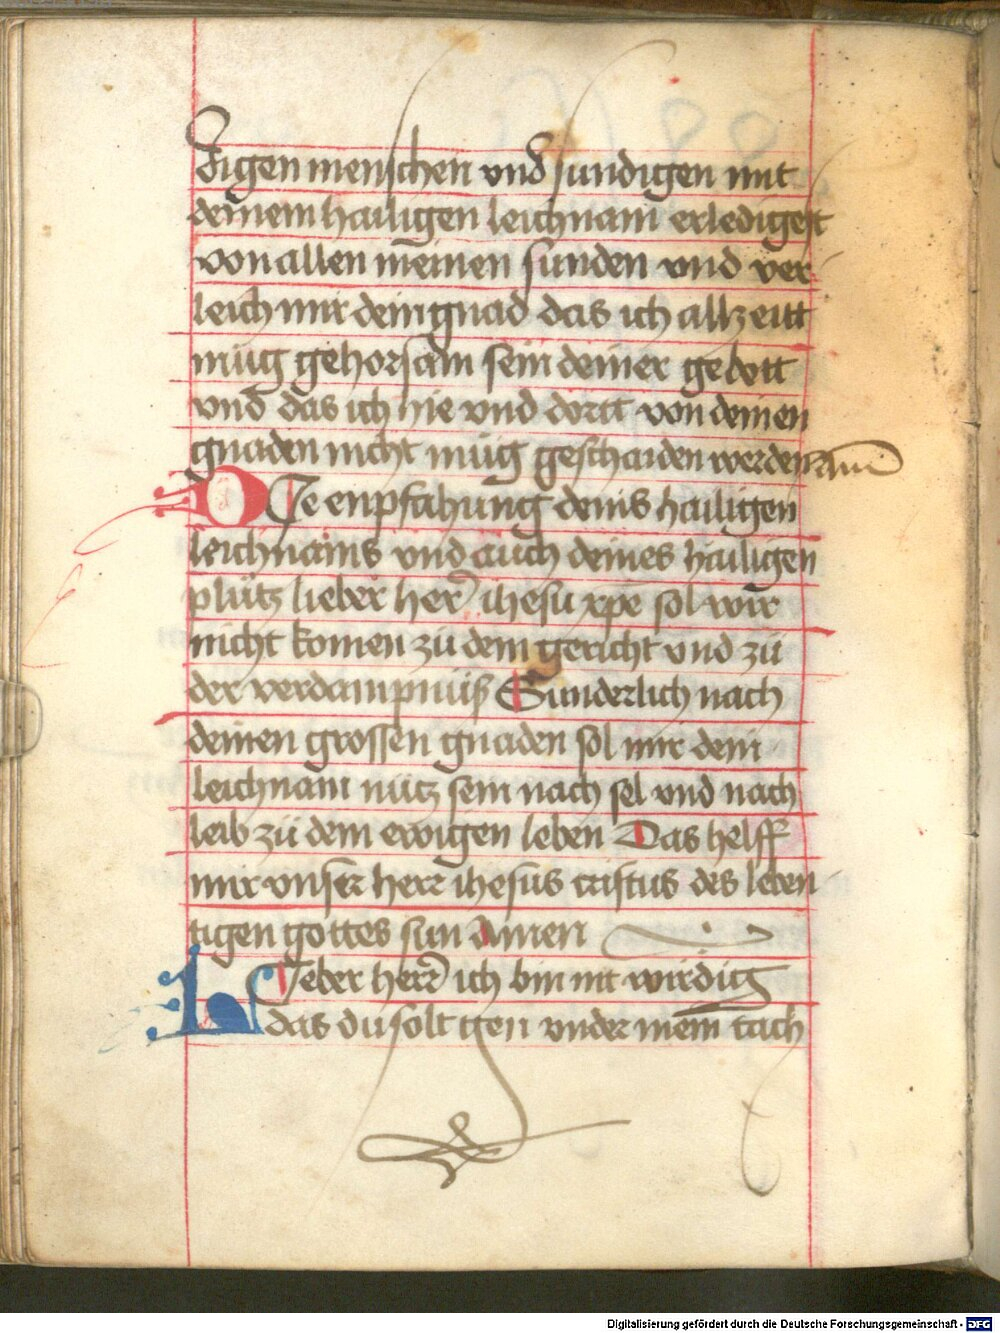 digen menschen vnd sundigen mit
deinem hailigen leichnam erledigest
von allen meinen sunden vnd ver
leich mir dein gnad das ich allzeitt
müg gehorsam sein deiner gebott
vnd das ich hie vnd dortt von deinen
gnaden nicht müg geschaiden werden am̄
DIe enpfahung deins hailigen
leichnams vnd auch deines hailigen
plütz lieber her̄ ihesu xpe sol wir
nicht komen zü dem gericht vnd zü
der verdampnüß Sunderlich nach
deinen grossen gnaden sol mir dein
leichnam nütz sein nach sel vnd nach
leib zü dem ewigen leben Das helff
mir vnser herr ihesus cristus des leben
tigen gottes sun Amen
LIeber herr̄ ich bin nit wirdig
das du solt gen vnder mein tach
Digitalisierung gefördert durch die Deutsche Forschungsgemeinschaft - DFG